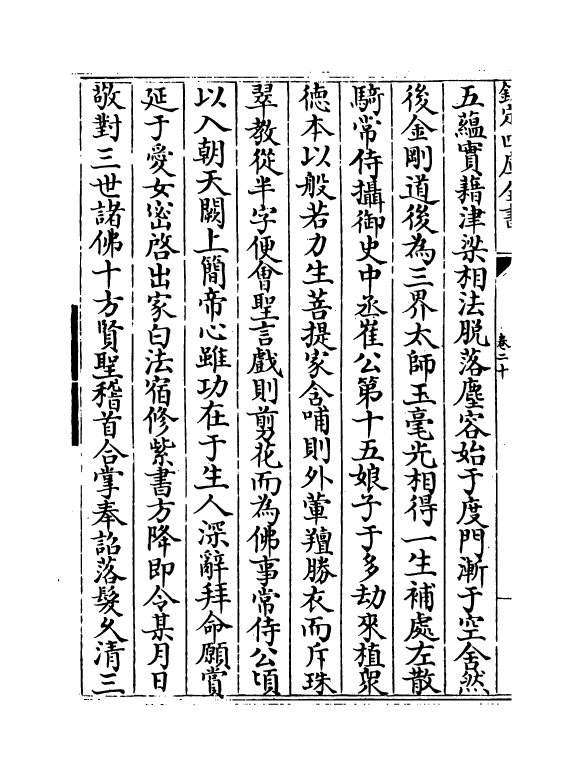 欽定四庫全書
卷二十
五蘊實藉津梁相法脱落塵容始于度門漸于空舍然
後金剛道後為三界太師玉毫光相得一生補處左散
騎常侍攝御史中丞崔公第十五娘子于多劫來植衆
徳本以般若力生菩提家含哺則外葷羶勝衣而斥珠
翠教從半字便會聖言戲則剪花而為佛事常侍公頃
以入朝天闕上簡帝心雖功在于生人深辭拜命願賞
延于愛女密啓出家白法宿修紫書方降即令某月日
敬對三世諸佛十方賢聖稽首合掌奉詔落髮久清三